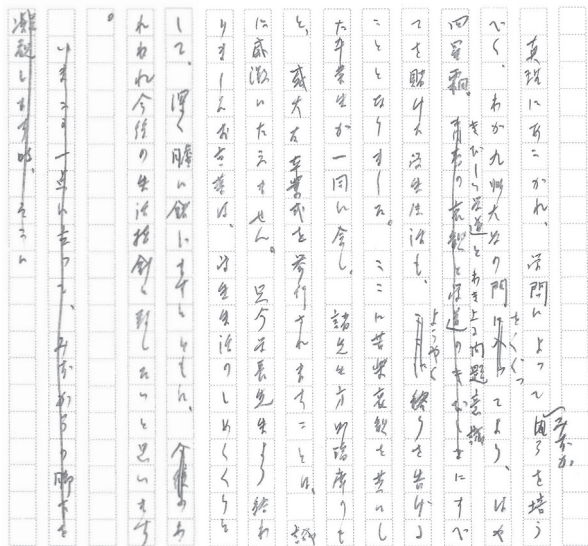 真理にあこがれ、学問によって自らを培う
べく、わが九州大学の門をくぐってより、はや
四星霜。きびしい学道とわき上る問題意識にすべ
てを賭けた学生生活も、ようやく終りを告げる
こととなりました。ここに苦楽哀歓を共にし
た卒業生が一同に会し、諸先生方の御臨席のも
と、盛大な卒業式を挙行されますことは、誠
に感激にたえません。只今学長先生より給わ
りましたお言葉は、学生生活のしめくくりと
して、深く胸に銘じますとともに、今後のわ
れわれ今後の生活指針と致したいと思います
。
いまこの一点に立って、みずからの脚下を
凝視します時、そこに